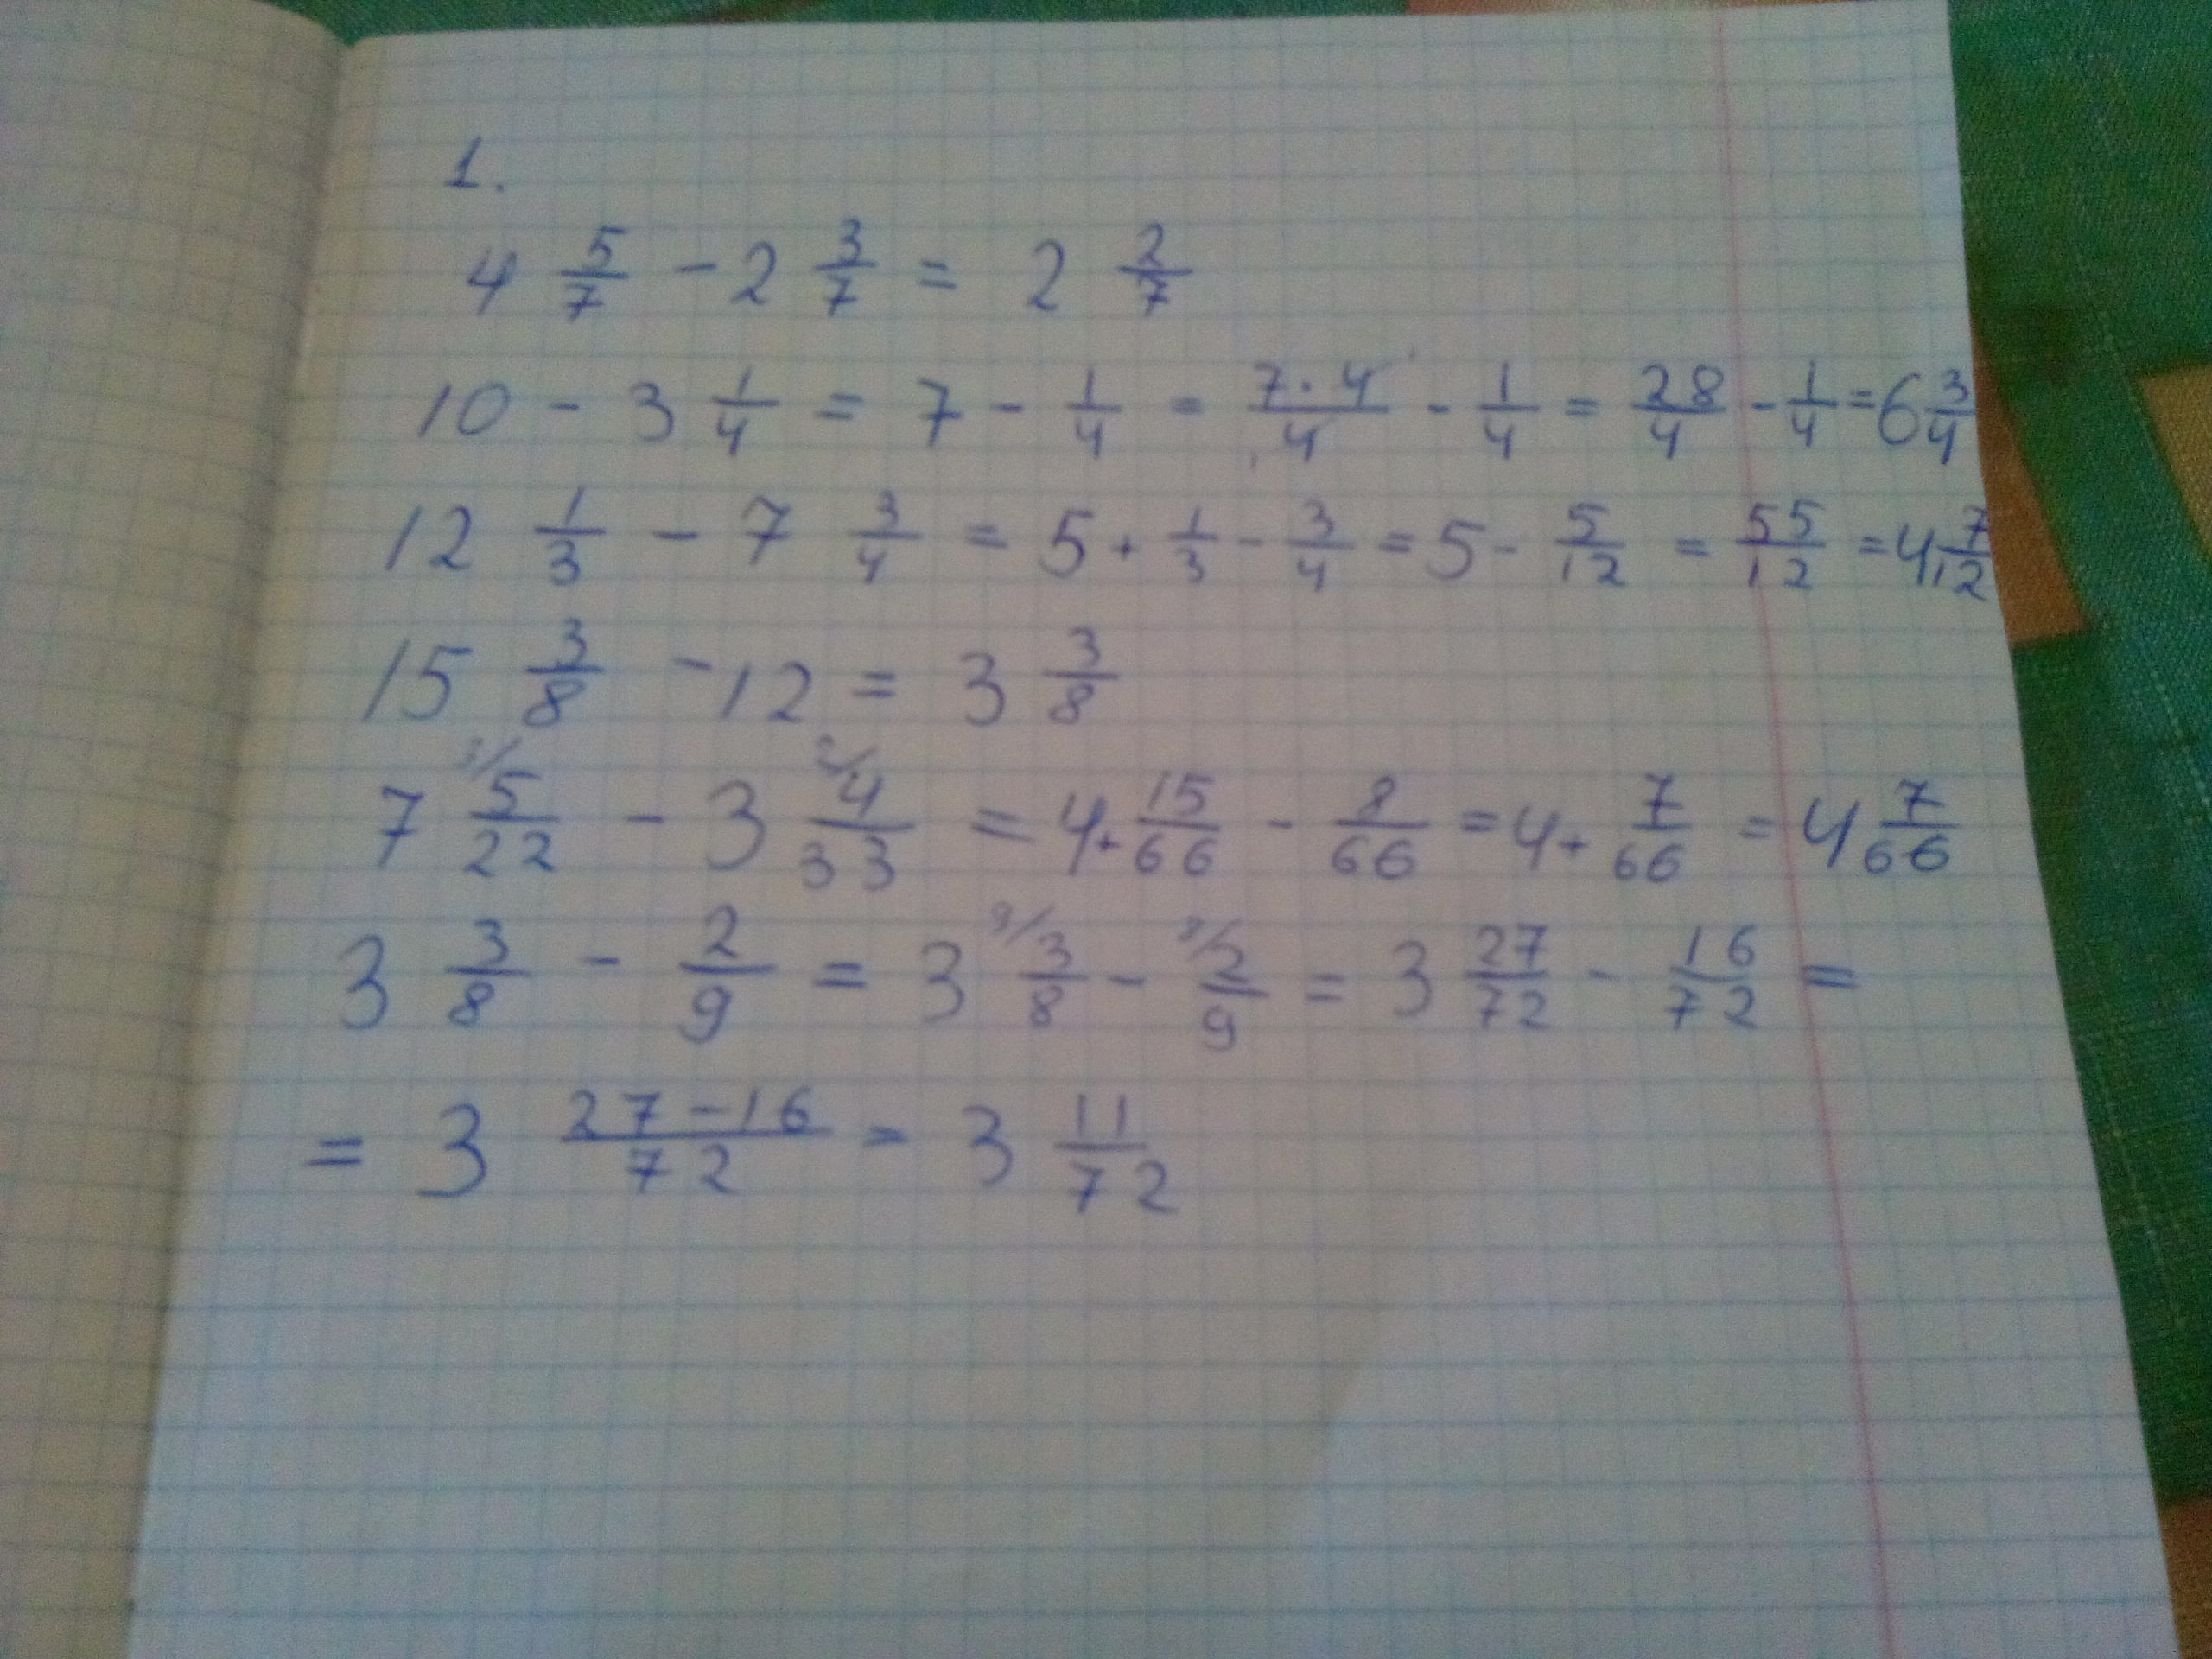 1.
4 5/7 - 2 3/7 = 2 2/7
10 - 3 1/4 = 7 - 1/4 = 7·4/4 - 1/4 = 28/4 - 1/4 = 6 3/4
12 1/3 - 7 3/4 = 5 + 1/3 - 3/4 = 5 - 5/12 = 55/12 = 4 7/12
15 3/8 - 12 = 3 3/8
7 5/22 - 3 4/33 = 4 + 15/66 - 8/66 = 4 + 7/66 = 4 7/66
3 3/8 - 2/9 = 3 3/8 - 2/9 = 3 27/72 - 16/72 =
= 3 27-16/72 = 3 11/72